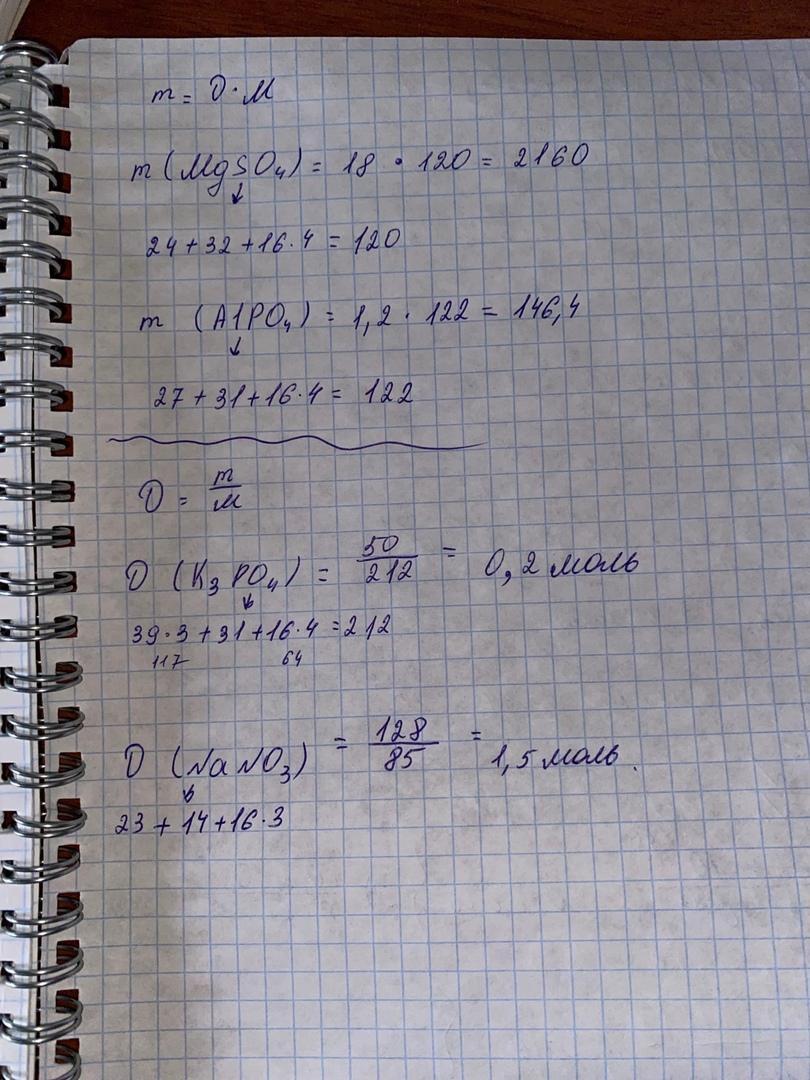 m = ϑ · M
m (MgSO₄) = 18 · 120 = 2160
↓
24 + 32 + 16 · 4 = 120
m (AlPO₄) = 1,2 · 122 = 146,4
↓
27 + 31 + 16 · 4 = 122
ϑ = m/M
ϑ (K₃PO₄) = 50/212 = 0,2 моль
↓
39 · 3 + 31 + 16 · 4 = 212
117 64
ϑ (NaNO₃) = 128/85 = 1,5 моль.
↓
23 + 14 + 16 · 3